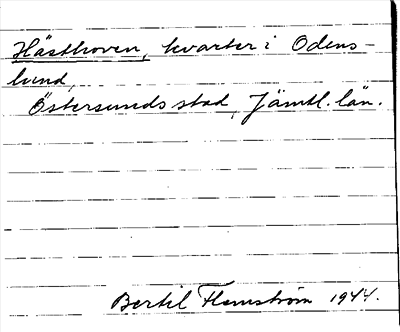 Hästhoven, kvarter i Odens-
lund,
Östersunds stad, Jämtl. län.
Bertil Flemström 1944.